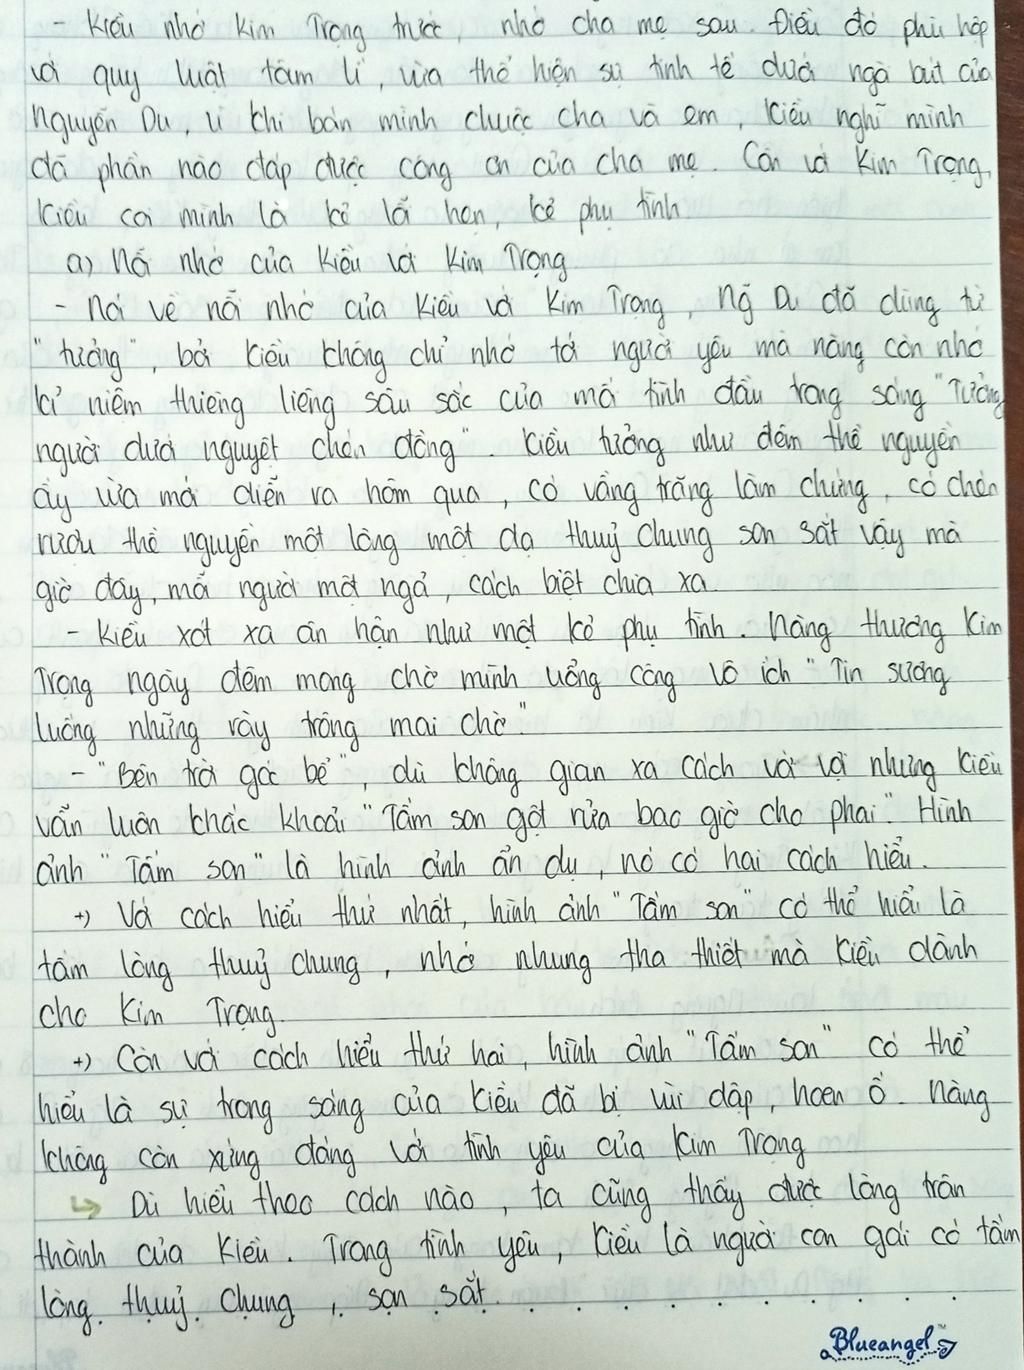 - Kiều nhớ Kim Trọng trước, nhớ cha mẹ sau. Điều đó phù hợp
với quy luật tâm lí, vừa thể hiện sự tinh tế dưới ngòi bút của
Nguyễn Du, vì khi bán mình chuộc cha và em, Kiều nghĩ mình
đã phần nào đáp được công ơn của cha mẹ. Còn với Kim Trọng,
Kiều coi mình là kẻ lỡ hẹn, kẻ phụ tình
a) Nỗi nhớ của Kiều với Kim Trọng
- Nói về nỗi nhớ của Kiều với Kim Trọng, Ng̃ Du đã dùng từ
"tưởng", bởi Kiều không chỉ nhớ tới người yêu mà nàng còn nhớ
kỉ niệm thiêng liêng sâu sắc của mối tình đầu trong sáng "Tưởng
người dưới nguyệt chén đồng". Kiều tưởng như đêm thề nguyền
ấy vừa mới diễn ra hôm qua, có vầng trăng làm chứng, có chén
rượu thề nguyền một lòng một dạ thuỷ chung son sắt vậy mà
giờ đây, mỗi người một ngả, cách biệt chia xa.
- Kiều xót xa ân hận như một kẻ phụ tình. Nàng thương Kim
Trọng ngày đêm mong chờ mình uổng công vô ích "Tin sương
luống những rày trông mai chờ"
- "Bên trời góc bể", dù không gian xa cách vời vợi nhưng Kiều
vẫn luôn khắc khoải "Tấm son gột rửa bao giờ cho phai". Hình
ảnh "Tấm son" là hình ảnh ẩn dụ, nó có hai cách hiểu.
+) Với cách hiểu thứ nhất, hình ảnh "Tấm son" có thể hiểu là
tấm lòng thuỷ chung, nhớ nhung tha thiết mà Kiều dành
cho Kim Trọng.
+) Còn với cách hiểu thứ hai, hình ảnh "Tấm son" có thể
hiểu là sự trong sáng của Kiều đã bị vùi dập, hoen ố. Nàng
không còn xứng đáng với tình yêu của Kim Trọng
↳ Dù hiểu theo cách nào, ta cũng thấy được lòng trân
thành của Kiều. Trong tình yêu, Kiều là người con gái có tấm
lòng thuỷ chung, son sắt. . . . . . . . . . . .
Blueangel